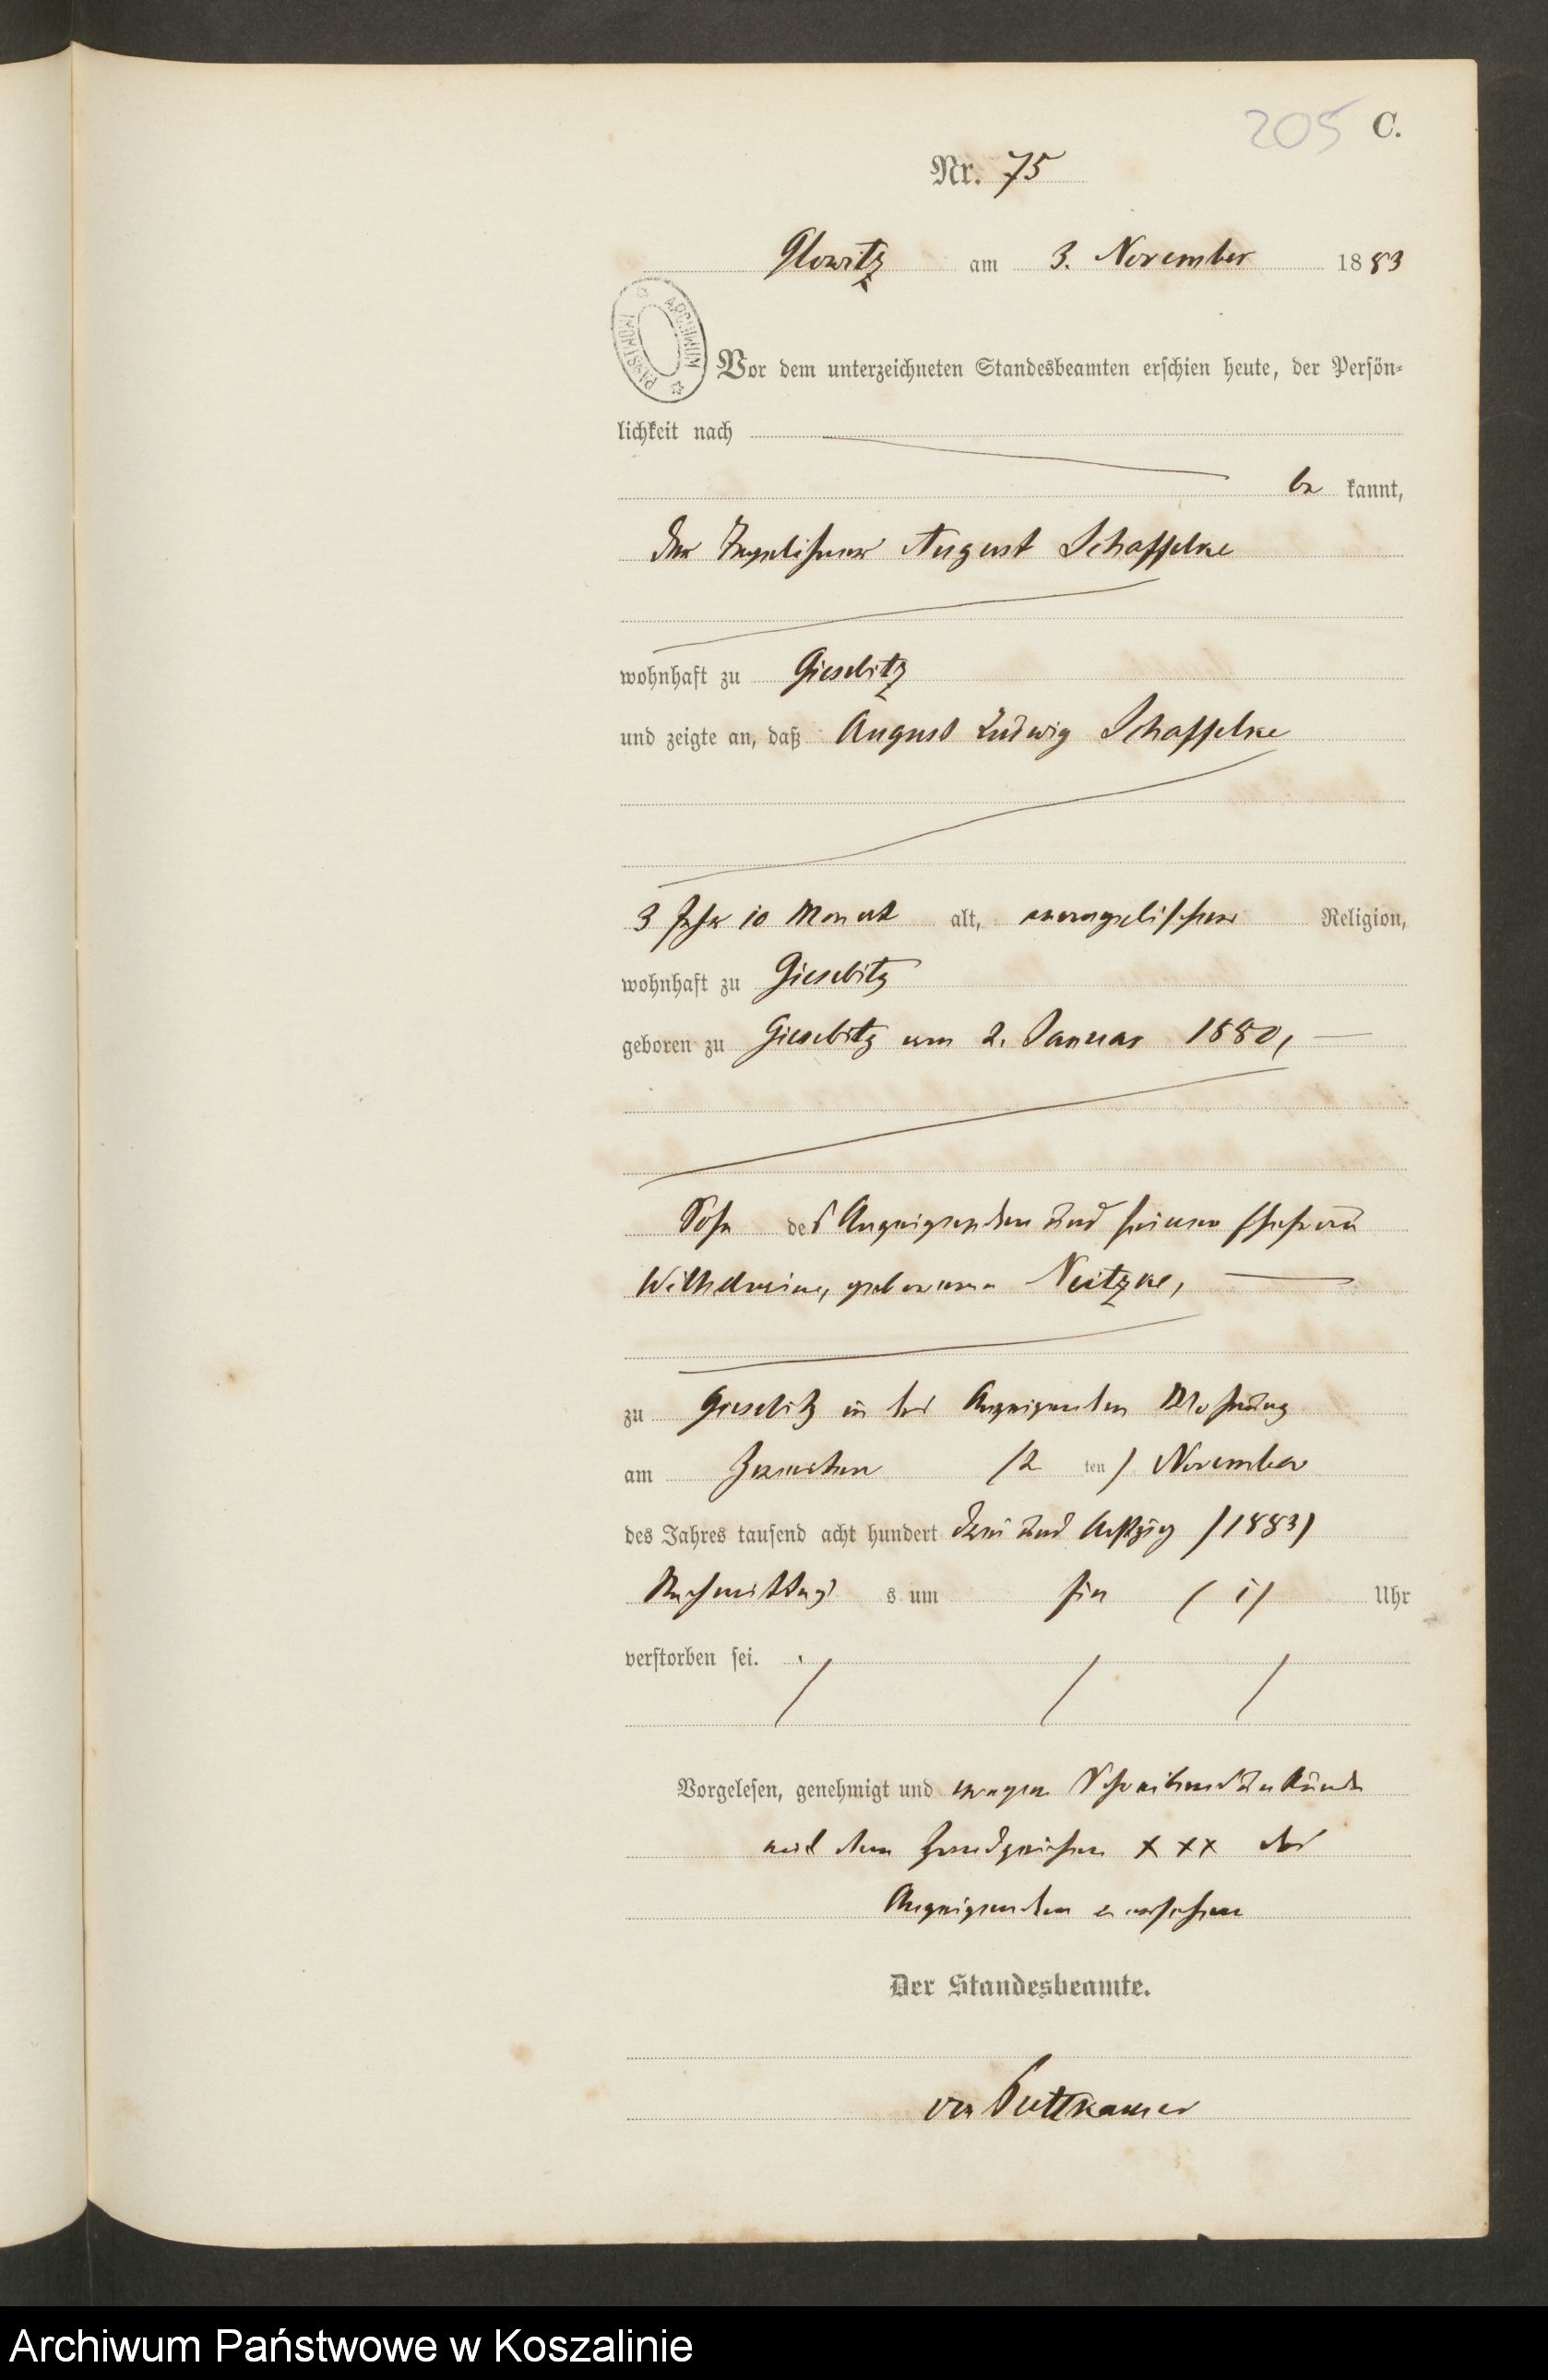 205 C.
Nr. 75
Glowitz am 3. November 1883
ARCHIWUM PAŃSTWOWE
Vor dem unterzeichneten Standesbeamten erschien heute, der Persön-
lichkeit nach
be kannt,
der August Schaffelke
wohnhaft zu Giesebitz
und zeigte an, daß August Ludwig Schaffelke
3 Jahr 10 Monat alt, evangelischer Religion,
wohnhaft zu Giesebitz
geboren zu Giesebitz am 2. Januar 1880,
Sohn des Anzeigenden und seiner Ehefrau
Wilhelmine, geborenen Neitzke,
zu Giesebitz in des Anzeigenden Wohnung
am Zweiten /2 ten/ November
des Jahres tausend acht hundert drei und achtzig /1883/
Nachmittags s um Ein (1/ Uhr
verstorben sei.
Vorgelesen, genehmigt und wegen Schreibensunkunde
mit dem Handzeichen xxx des
Anzeigenden versehen
Der Standesbeamte.
von Puttkamer
Archiwum Państwowe w Koszalinie